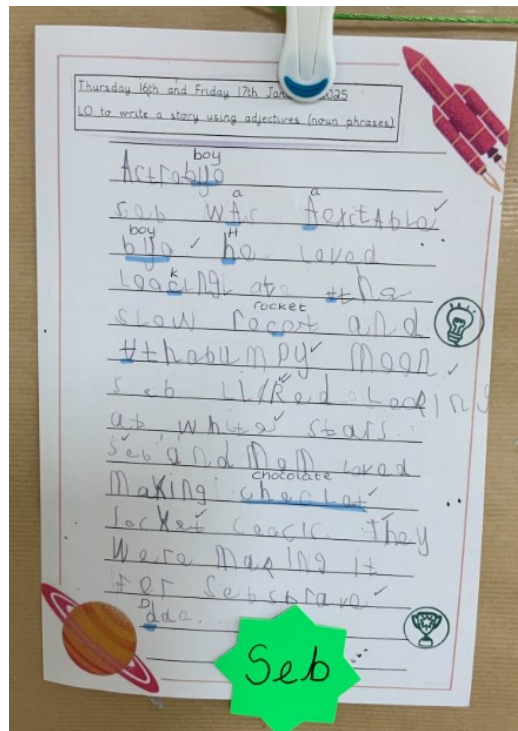 Thursday 16th and Friday 17th Jan 2025
LO to write a story using adjectives (noun phrases)
boy
Astrobyo
a a
seb wAs Aexitable
boy H
byo he loved
K
loocing at the
rocket
slow rocot and
tthebumpy moon
seb liked looking
at white stars.
Seb and Mom loved
chocolate
Making choclat
They
Were making it
for Sebsbrave
D
dda.
Seb